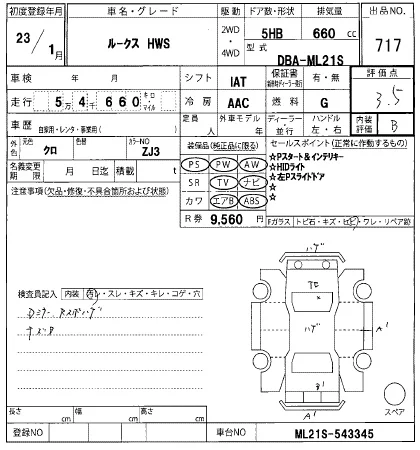 初度登録年月
車名・グレード
駆動
ドア数・形状
排気量
出品NO.
23/1月
ルークス HWS
2WD
・
4WD
5HB
660 cc
717
型式
DBA-ML21S
車検 年 月
シフト
IAT
保証書
有・無
評価点
3.5
走行 5万4千660 キロ・マイル
冷房
AAC
燃料
G
車歴 自家用・レンタ・事業用( )
定員
人
外車モデル
年
ディーラー
・
並行
ハンドル
左・右
内装評価
B
外色
元色
クロ
色替
カラーNO
ZJ3
装備品(純正品に限る)
セールスポイント(正常に作動するもの)
名義変更期限
月 日迄
積載
t
PS PW AW
SR TV ナビ
カワ エアB ABS
☆Pスタート&インテリキー
☆HIDライト
☆左Pスライドドア
☆
☆
注意事項(欠品・修復・不具合箇所および状態)
R券 9,560 円
Fガラス トビ石・キズ・ヒビ・ワレ・リペア跡
検査員記入
内装 ・スレ・キズ・キレ・コゲ・穴
ハゲ
ハゲ
A'
B'
A'
スペア
長さ cm
幅 cm
高さ cm
登録NO
車台NO
ML21S-543345